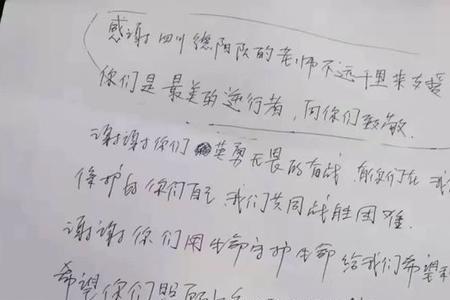 感谢四川德阳队的老师不远千里来支援
你们是最美的逆行者,向你们致敬.
谢谢你们英勇无畏的奋战 你们在我
保护自你们自己,我们共同战胜困难.
谢谢你们用生命守护生命给我们希望和
希望你们照顾